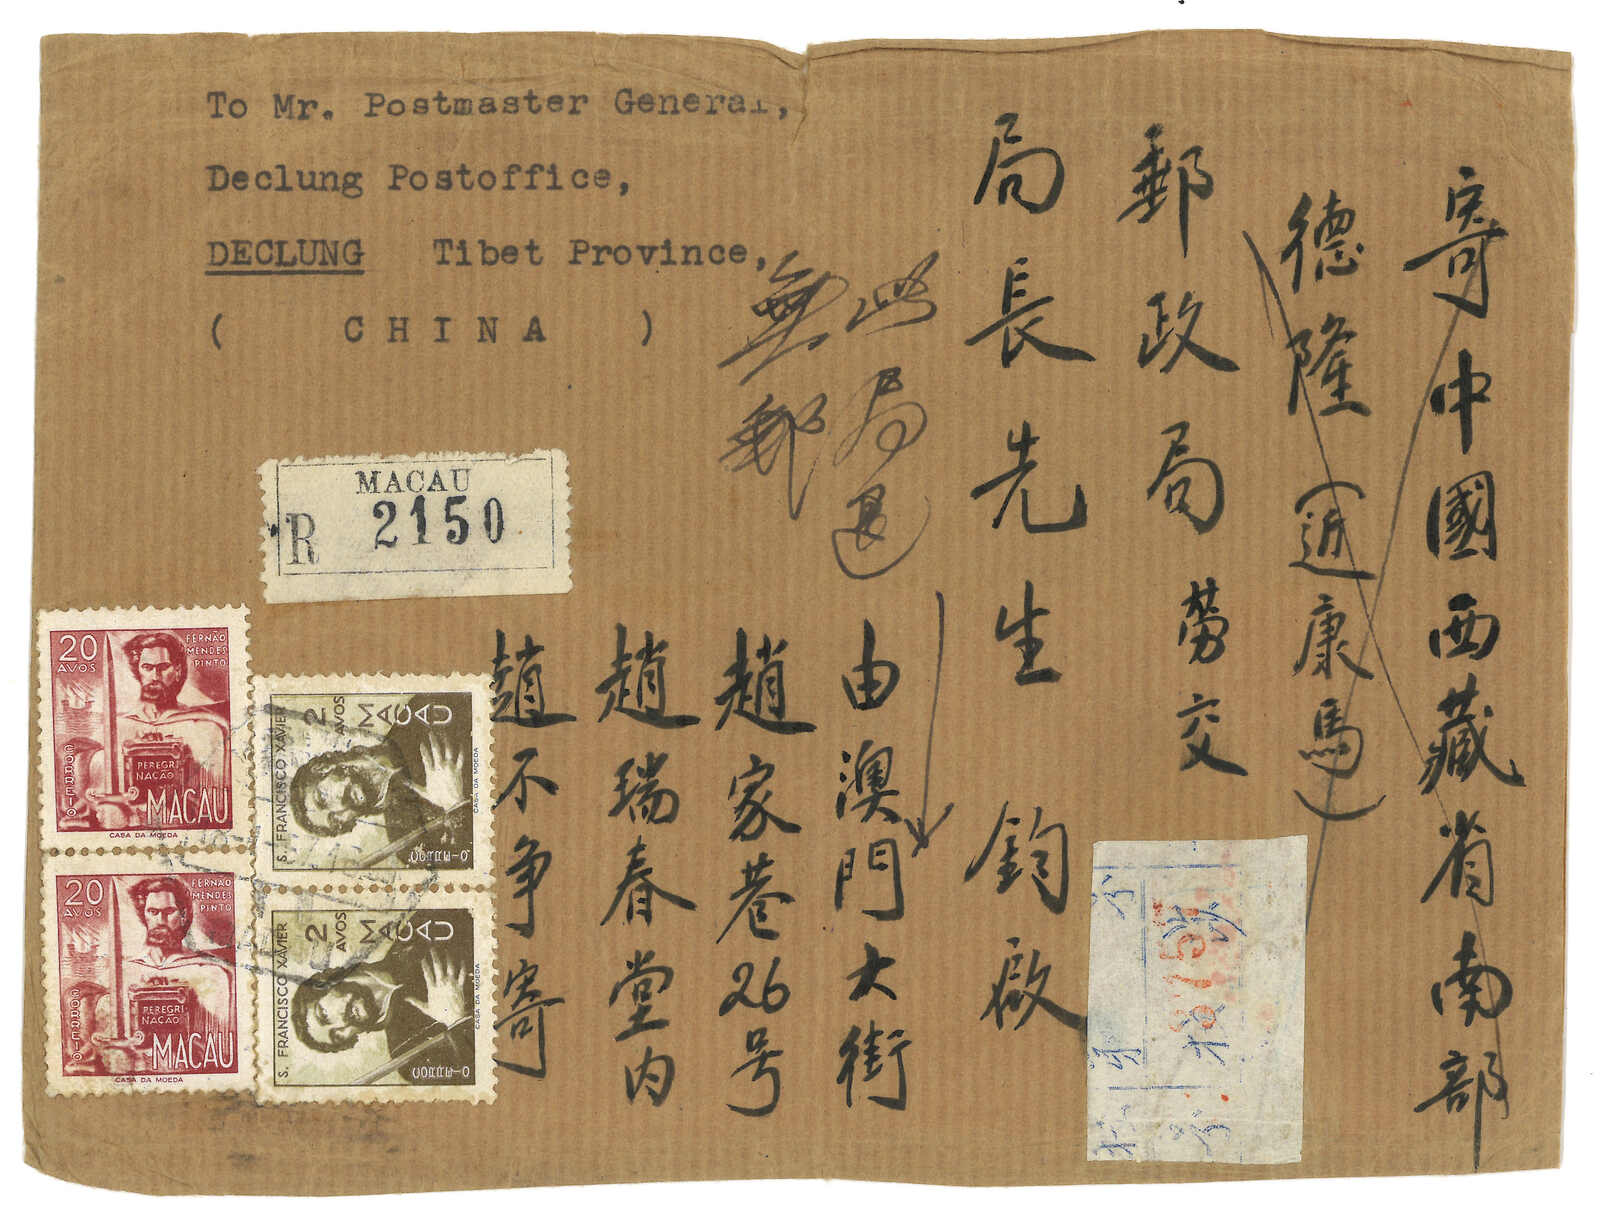 To Mr. Postmaster General,
Declung Postoffice,
DECLUNG Tibet Province,
( CHINA )
寄中國西藏省南部
德隆（近康馬）
郵政局勞交
局長先生 鈞啟
此局退
無郵
由澳門大街
趙家巷26号
趙瑞春堂内
趙不争寄
MACAU
R 2150
20
AVOS
FERNÃO
MENDES
PINTO
CORREIO
PEREGRI
NAÇÃO
MACAU
CASA DA MOEDA
20
AVOS
FERNÃO
MENDES
PINTO
CORREIO
PEREGRI
NAÇÃO
MACAU
CASA DA MOEDA
S. FRANCISCO XAVIER
2
AVOS
MACAU
CORREIO
CASA DA MOEDA
S. FRANCISCO XAVIER
2
AVOS
MACAU
CORREIO
CASA DA MOEDA